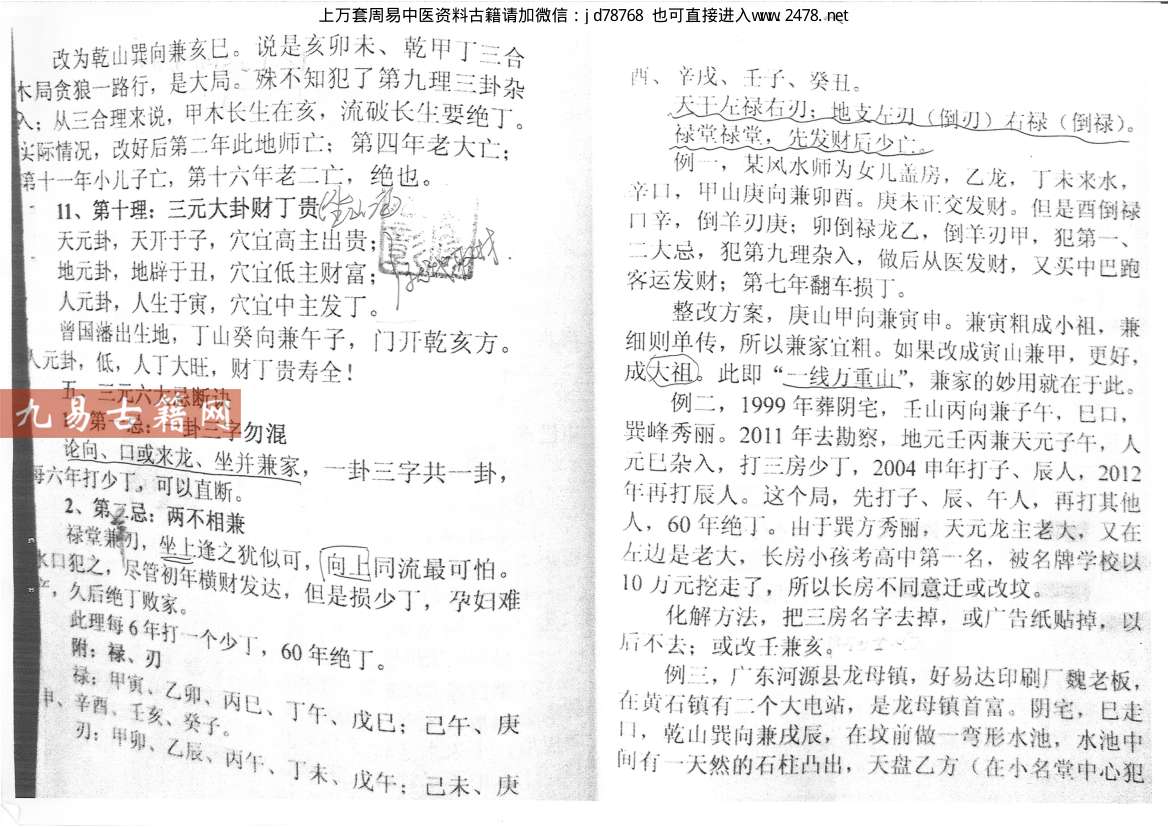 上万套周易中医资料古籍请加微信：jd78768 也可直接进入www.2478.net
改为乾山巽向兼亥巳。说是亥卯未、乾甲丁三合
木局贪狼一路行，是大局。殊不知犯了第九理三卦杂
入；从三合理来说，甲木长生在亥，流破长生要绝丁。
实际情况，改好后第二年此地师亡；第四年老大亡；
第十一年小儿子亡，第十六年老二亡，绝也。
11、第十理：三元大卦财丁贵
天元卦，天开于子，穴宜高主出贵；
地元卦，地辟于丑，穴宜低主财富；
人元卦，人生于寅，穴宜中主发丁。
曾国藩出生地，丁山癸向兼午子，门开乾亥方。
人元卦，低，人丁大旺，财丁贵寿全！
五、三元六大忌断诀
九易古籍网
第一忌：一卦三字勿混
论向、口或来龙、坐并兼家，一卦三字共一卦，
每六年打少丁，可以直断。
2、第二忌：两不相兼
禄堂兼刃，坐上逢之犹似可，向上同流最可怕。
水口犯之，尽管初年横财发达，但是损少丁，孕妇难
产，久后绝丁败家。
此理每6年打一个少丁，60年绝丁。
附：禄、刃
禄：甲寅、乙卯、丙巳、丁午、戊巳；己午、庚
申、辛酉、壬亥、癸子。
刃：甲卯、乙辰、丙午、丁未、戊午；己未、庚
酉、辛戌、壬子、癸丑。
天干左禄右刃；地支左刃（倒刃）右禄（倒禄）。
禄堂禄堂，先发财后少亡。
例一，某风水师为女儿盖房，乙龙，丁未来水，
辛口，甲山庚向兼卯酉。庚未正交发财。但是酉倒禄
口辛，倒羊刃庚；卯倒禄龙乙，倒羊刃甲，犯第一、
二大忌，犯第九理杂入，做后从医发财，又买中巴跑
客运发财；第七年翻车损丁。
整改方案，庚山甲向兼寅申。兼寅粗成小祖，兼
细则单传，所以兼家宜粗。如果改成寅山兼甲，更好，
成大祖。此即“一线万重山”，兼家的妙用就在于此。
例二，1999年葬阴宅，壬山丙向兼子午，巳口，
巽峰秀丽。2011年去勘察，地元壬丙兼天元子午，人
元巳杂入，打三房少丁，2004申年打子、辰人，2012
年再打辰人。这个局，先打子、辰、午人，再打其他
人，60年绝丁。由于巽方秀丽，天元龙主老大，又在
左边是老大，长房小孩考高中第一名，被名牌学校以
10万元挖走了，所以长房不同意迁或改坟。
化解方法，把三房名字去掉，或广告纸贴掉，以
后不去；或改壬兼亥。
例三，广东河源县龙母镇，好易达印刷厂魏老板，
在黄石镇有二个大电站，是龙母镇首富。阴宅，巳走
口，乾山巽向兼戌辰，在坟前做一弯形水池，水池中
间有一天然的石柱凸出，天盘乙方（在小名堂中心犯